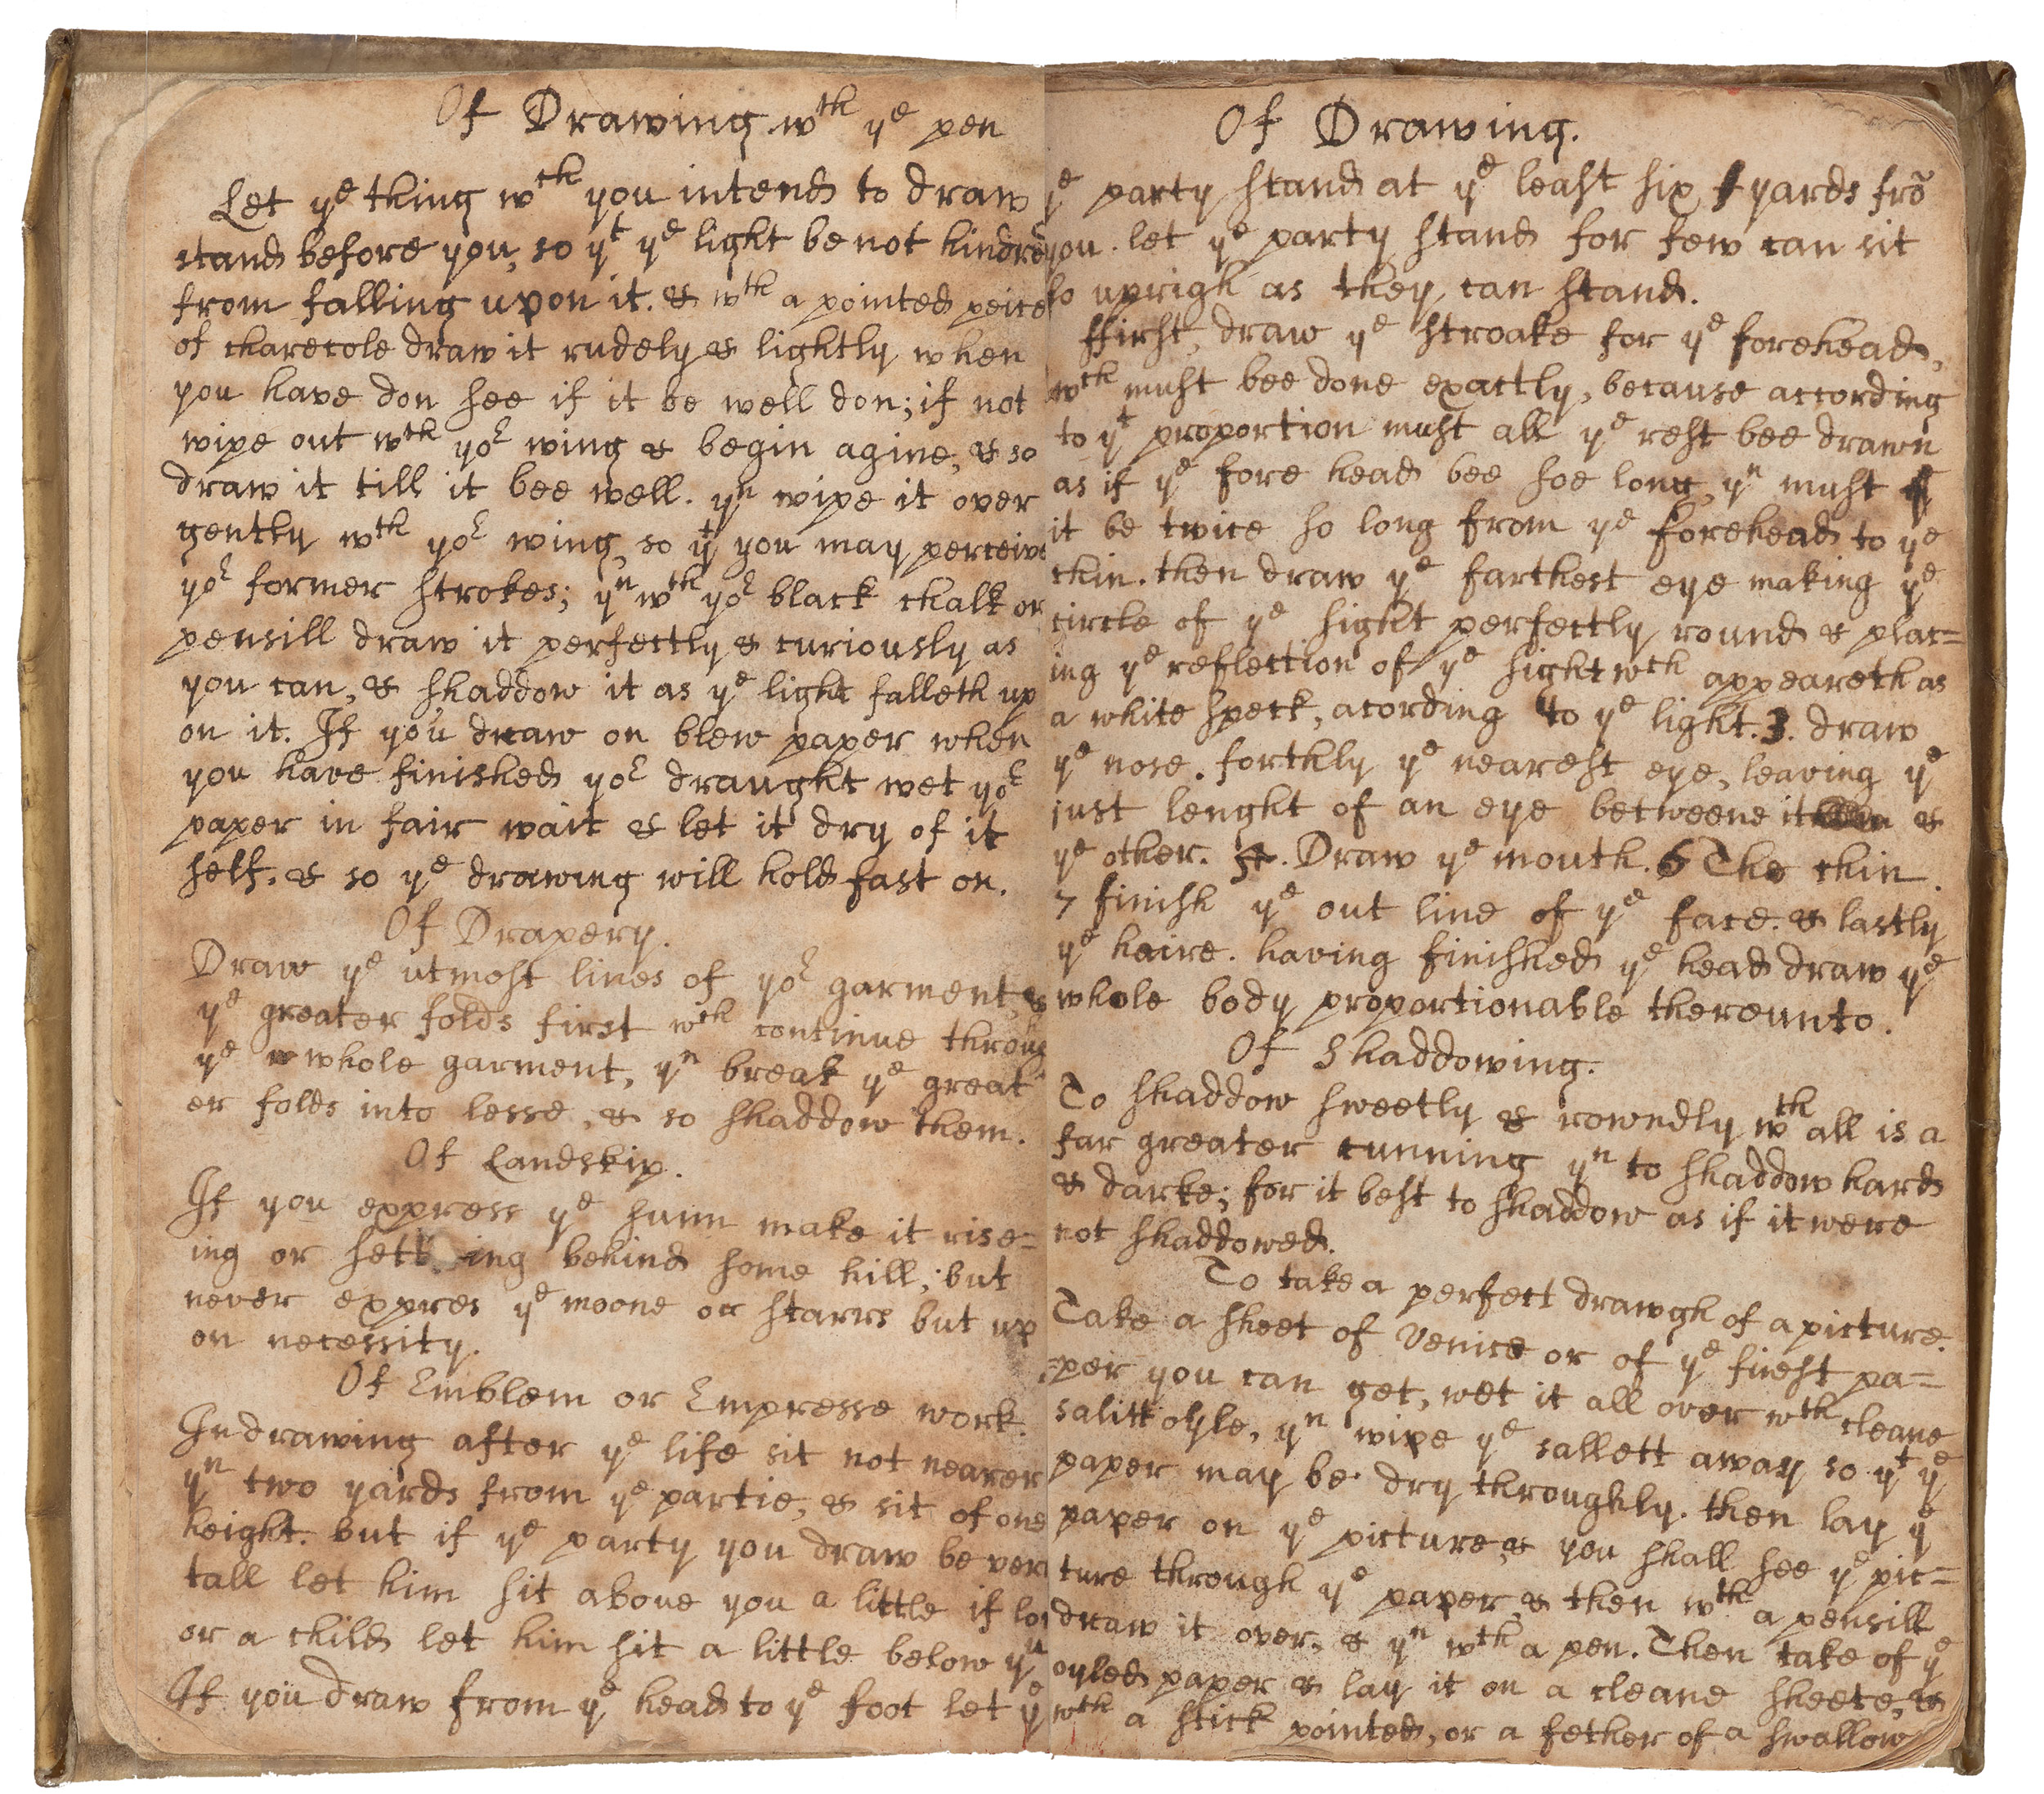 Of Drawing wth ye pen
Let ye thing wch you intend to draw
stand before you, so yt ye light be not hindred
from falling upon it. & wth a pointed peice
of charecole draw it rudely & lightly when
you have don see if it be well don; if not
wipe out wth yor wing & begin agine, & so
draw it till it bee well. yn wipe it over
gently wth yor wing, so yt you may perceive
yor former strokes; yn wth yor black chalk or
pensill draw it perfectly & curiously as
you can, & shaddow it as ye light falleth up
on it. If you draw on blew paper when
you have finished yor draught wet yor
paper in fair wait & let it dry of it
self, & so ye drawing will hold fast on.
Of Drapery.
Draw ye utmost lines of yor garment, &
ye greater folds first wch continue throug
ye whole garment, yn break ye great
er folds into lesse, & so shaddow them.
Of Landskip.
If you express ye sunn make it rise=
ing or setting behind some hill; but
never expres ye moone or starrs but up
on necessity.
Of Emblem or Empresse work.
In drawing after ye life sit not nearer
yn two yards from ye partie, & sit of one
height. but if ye party you draw be very
tall let him sit above you a little if low
or a child let him sit a little below yu
If you draw from ye head to ye foot let ye
Of Drawing.
ye party stand at ye least six yards frō
you. let ye party stand for few can sit
so uprigh as they can stand.
ffirst, draw ye stroake for ye forehead,
wch must bee done exactly, because according
to yt proportion must all ye rest bee drawn
as if ye fore head bee soe long, yn must
it be twice so long from ye forehead to ye
chin. then draw ye farthest eye making ye
circle of ye sight perfectly round & plac=
ing ye reflection of ye sight wch appeareth as
a white speck, acording to ye light. 3. draw
ye nose. forthly ye nearest eye, leaving ye
just lenght of an eye betweene it &
ye other. 5. Draw ye mouth. 6 The chin.
7 finish ye out line of ye face. & lastly
ye haire. having finished ye head draw ye
whole body proportionable thereunto.
Of Shaddowing.
To shaddow sweetly & rowndly wth all is a
far greater cunning yn to shaddow hard
& darke; for it best to shaddow as if it were
not shaddowed.
To take a perfect drawgh of a picture.
Take a sheet of Venice or of ye finest pa=
=per you can get, wet it all over wth cleane
salitt oyle, yn wipe ye sallett away so yt ye
paper may be dry throughly. then lay ye
paper on ye picture, & you shall see ye pic=
ture through ye paper, & then wth a pensill
draw it over, & yn wth a pen. Then take of ye
oyled paper & lay it on a cleane sheete, &
wth a stick pointed, or a fether of a swallow